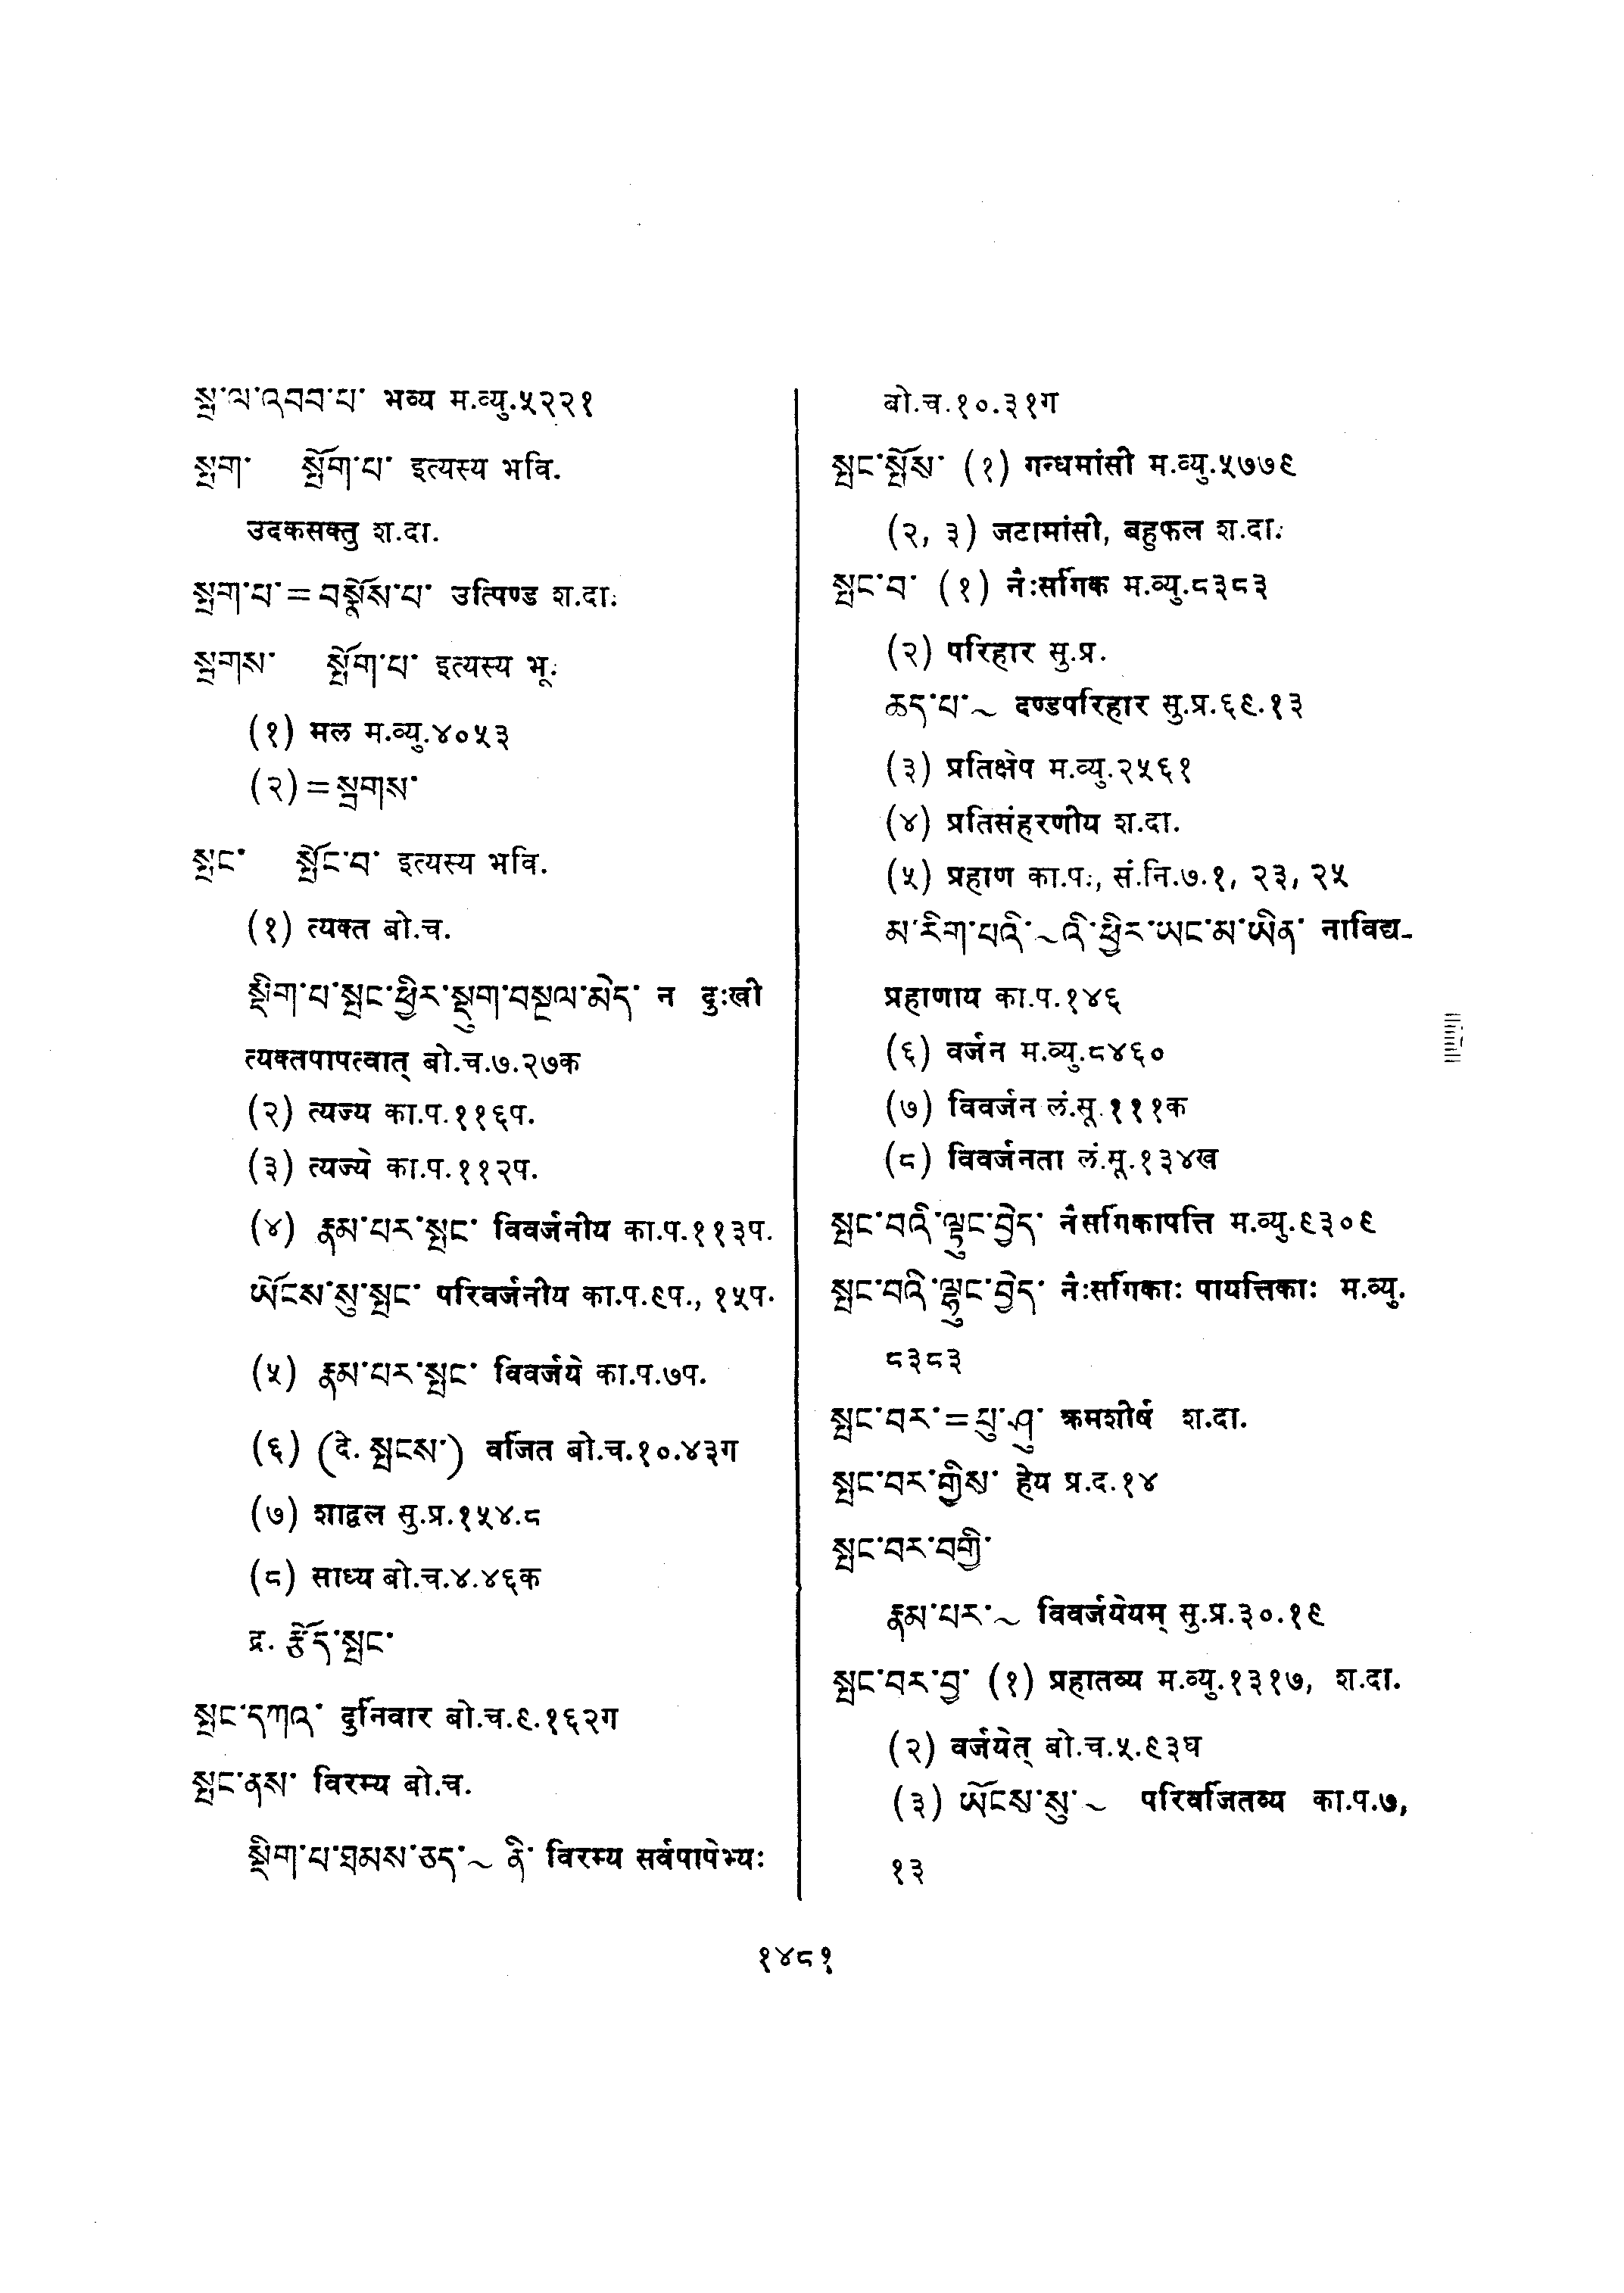 སྤྲ་ལ་འབབ་པ་ भव्य म.व्यु.५२२१
སྤྲག་ སྤྲོག་པ་ इत्यस्य भवि.
उदकसक्तु श.दा.
སྤྲག་པ་=བསྣོས་པ་ उत्पिण्ड श.दा.
སྤྲགས་ སྤྲོག་པ་ इत्यस्य भू.
(१) मल म.व्यु.४०५३
(२)=སྦྲགས་
སྤང་ སྤོང་བ་ इत्यस्य भवि.
(१) त्यक्त बो.च.
སྡིག་པ་སྤང་ཕྱིར་སྡུག་བསྔལ་མེད་ न दुःखी
त्यक्तपापत्वात् बो.च.७.२७क
(२) त्यज्य का.प.११६प.
(३) त्यज्ये का.प.११२प.
(४) རྣམ་པར་སྤང་ विवर्जनीय का.प.११३प.
ཡོངས་སུ་སྤང་ परिवर्जनीय का.प.९प., १५प.
(५) རྣམ་པར་སྤང་ विवर्जये का.प.७प.
(६) (दे. སྤངས་) वर्जित बो.च.१०.४३ग
(७) शाद्वल सु.प्र.१५४.८
(८) साध्य बो.च.४.४६क
द्र. རྩོད་སྤང་
སྤང་དཀའ་ दुर्निवार बो.च.९.१६२ग
སྤང་ནས་ विरम्य बो.च.
སྡིག་པ་ཐམས་ཅད་~ ནི་ विरम्य सर्वपापेभ्यः
बो.च.१०.३१ग
སྤང་སྤོས་ (१) गन्धमांसी म.व्यु.५७७९
(२, ३) जटामांसी, बहुफल श.दा.
སྤང་བ་ (१) नैःसर्गिक म.व्यु.८३८३
(२) परिहार सु.प्र.
ཆད་པ་~ दण्डपरिहार सु.प्र.६९.१३
(३) प्रतिक्षेप म.व्यु.२५६१
(४) प्रतिसंहरणीय श.दा.
(५) प्रहाण का.प., सं.नि.७.१, २३, २५
མ་རིག་པའི་~འི་ཕྱིར་ཡང་མ་ཡིན་ नाविद्य-
प्रहाणाय का.प.१४६
(६) वर्जन म.व्यु.८४६०
(७) विवर्जन लं.सू.१११क
(८) विवर्जनता लं.सू.१३४ख
སྤང་བའི་ལྟུང་བྱེད་ नैसर्गिकापत्ति म.व्यु.९३०९
སྤང་བའི་ལྟུང་བྱེད་ नैःसर्गिकाः पायत्तिकाः म.व्यु.
८३८३
སྤང་བར་=པུ་ཤུ་ क्रमशीर्ष श.दा.
སྤང་བར་གྱིས་ हेय प्र.द.१४
སྤང་བར་བགྱི་
རྣམ་པར་~ विवर्जयेयम् सु.प्र.३०.१९
སྤང་བར་བྱ་ (१) प्रहातव्य म.व्यु.१३१७, श.दा.
(२) वर्जयेत् बो.च.५.९३घ
(३) ཡོངས་སུ་~ परिवर्जितव्य का.प.७,
१३
१४८१